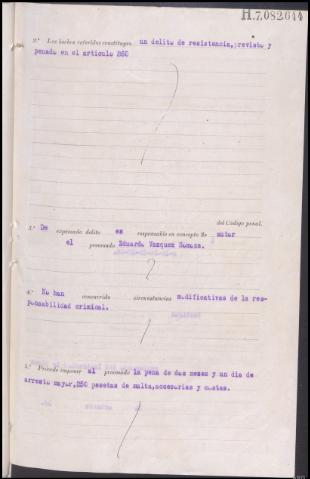 H.7,082644
2.ª Los hechos referidos constituyen un delito de resistencia, previsto y
penado en el artículo 260
del Código penal.
3.ª De expresado delito es responsable en concepto de autor
el procesado Eduardo Vazquez
4.ª No han concurrido circunstancias modificativas de la res-
ponsabilidad criminal.
5.ª Procede imponer al procesado la pena de dos meses y un dia de
arresto mayor, 250 pesetas de multa, accesorias y costas.